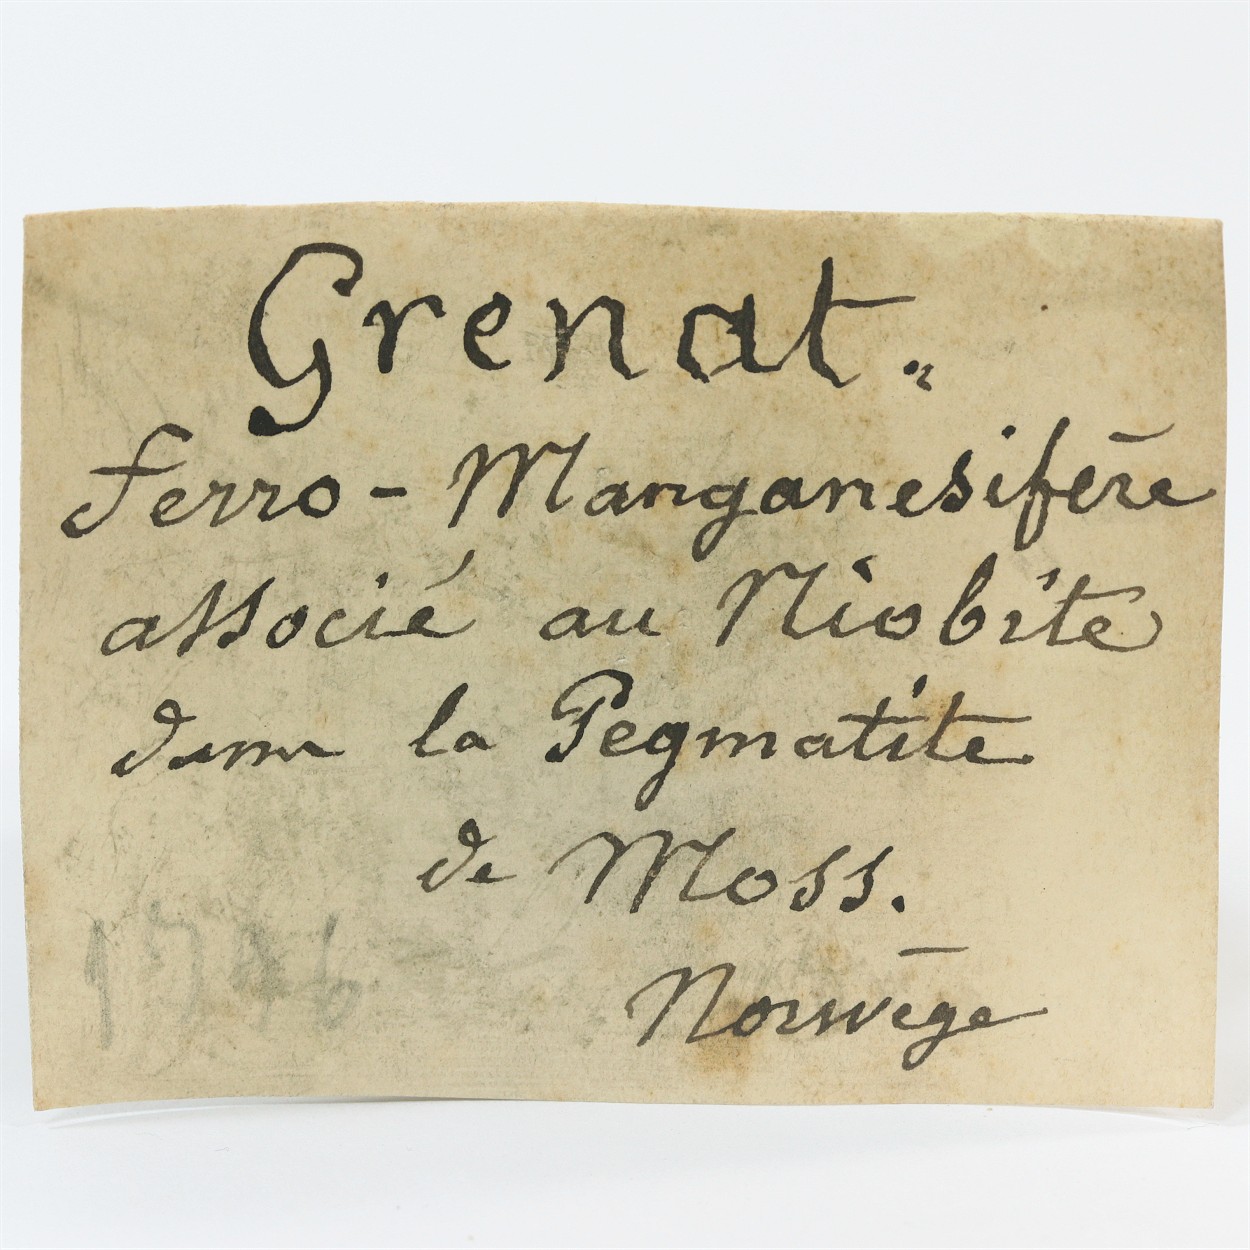 Grenat.
ferro-Manganésifère
associé au Niobite
dans la Pegmatite
de Moss.
Norwège